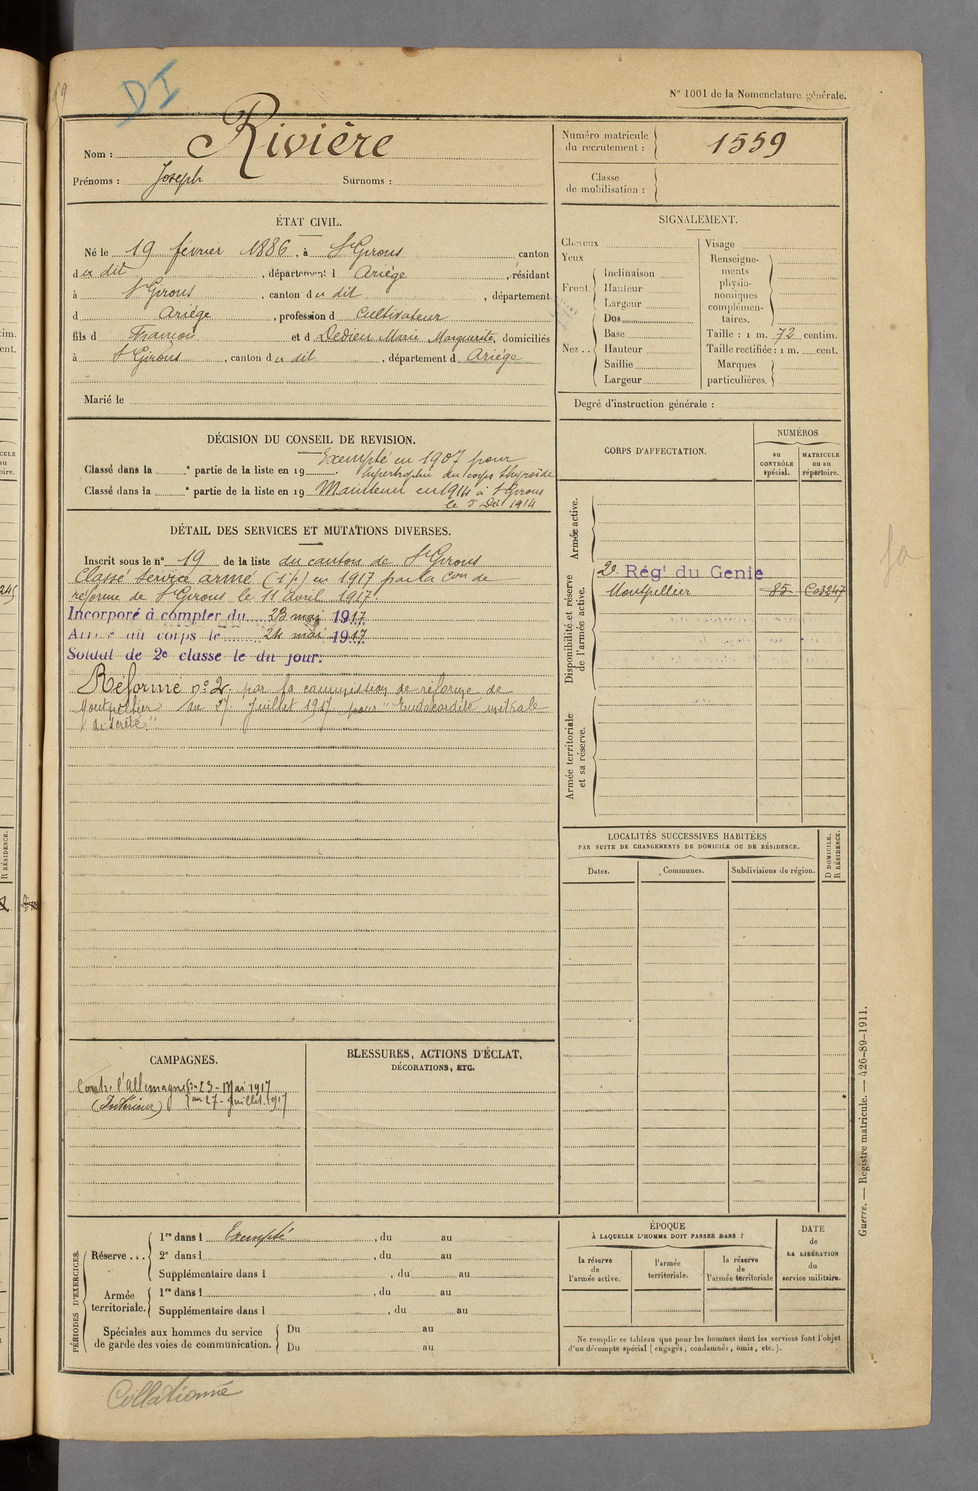 DI
N° 1001 de la Nomenclature générale.
Nom : Rivière
Prénoms : Joseph Surnoms :
Numéro matricule du recrutement : 1559
Classe de mobilisation :
ÉTAT CIVIL.
Né le 19 février 1886, à St Girons canton
du dit, département d Ariège, résidant
à St Girons, canton du dit, département
d Ariège, profession d Cultivateur
fils d François et d Dedieu Marie Marguerite, domiciliés
à St Girons, canton du dit, département d Ariège
Marié le
SIGNALEMENT.
Cheveux
Yeux
Front. Inclinaison
Hauteur
Largeur
Nez... Dos
Base
Hauteur
Saillie
Largeur
Visage
Renseignements physionomiques complémentaires.
Taille : 1 m. 72 centim.
Taille rectifiée : 1 m. cent.
Marques particulières.
Degré d'instruction générale :
DÉCISION DU CONSEIL DE REVISION.
Exempté en 1907 pour
Classé dans la e partie de la liste en 19 . hypertrophie du corps thyroïde
Classé dans la e partie de la liste en 19 Maintenu en 1914 à St Girons
le 5 Déc 1914
DÉTAIL DES SERVICES ET MUTATIONS DIVERSES.
Inscrit sous le n° 19 de la liste du canton de St Girons
Classé service armé (s.p.) en 1917 par la Con de
réforme de St Girons le 11 avril 1917.
Incorporé à compter du 23 mai 1917
Arrivé au corps le 24 mai 1917
Soldat de 2e classe le du jour.
Réformé n° 2 par la commission de réforme de
Montpellier du 27 Juillet 1917 pour "Endocardite mitrale
discrète"
CORPS D'AFFECTATION.
NUMÉROS
au CONTRÔLE spécial.
MATRICULE ou au répertoire.
Armée active.
Disponibilité et réserve de l'armée active.
2e Régt du Genie
Montpellier 85
Armée territoriale et sa réserve.
LOCALITÉS SUCCESSIVES HABITÉES
PAR SUITE DE CHANGEMENTS DE DOMICILE OU DE RÉSIDENCE.
Dates. Communes. Subdivisions de région. D DOMICILE. R RÉSIDENCE.
CAMPAGNES.
Contre l'Allemagne du 23 - Mai 1917
(Intérieur) au 27 - Juillet 1917
BLESSURES, ACTIONS D'ÉCLAT,
DÉCORATIONS, ETC.
PÉRIODES D'EXERCICES.
Réserve... 1re dans l Exempté, du au
2e dans l , du au
Supplémentaire dans l , du au
Armée territoriale. 1re dans l , du au
Supplémentaire dans l , du au
Spéciales aux hommes du service de garde des voies de communication. Du au
Du au
ÉPOQUE
À LAQUELLE L'HOMME DOIT PASSER DANS :
la réserve de l'armée active.
l'armée territoriale.
la réserve de l'armée territoriale
DATE de LA LIBÉRATION du service militaire.
Ne remplir ce tableau que pour les hommes dont les services font l'objet
d'un décompte spécial (engagés, condamnés, omis, etc.).
Guerre. — Registre matricule. — 426-89-1911.
Collationné